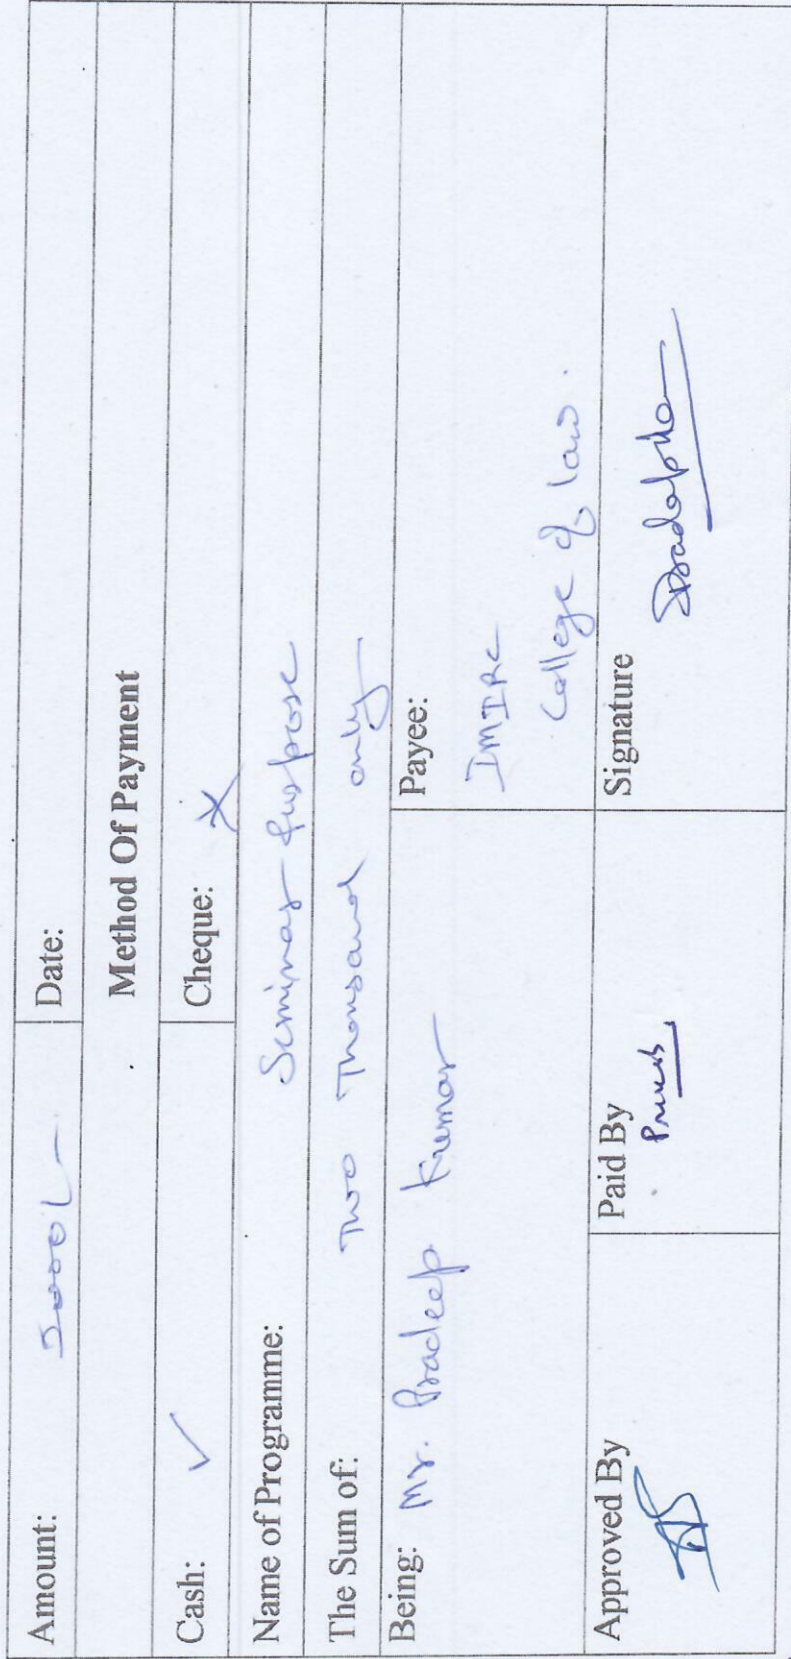 Amount: 2000/- Date:
Method Of Payment
Cash: ✓ Cheque: ×
Name of Programme: Seminar Purpose
The Sum of: Two Thousand only
Being: Mr. Pradeep Kumar Payee:
IMIRC
College of law.
Approved By Paid By Signature